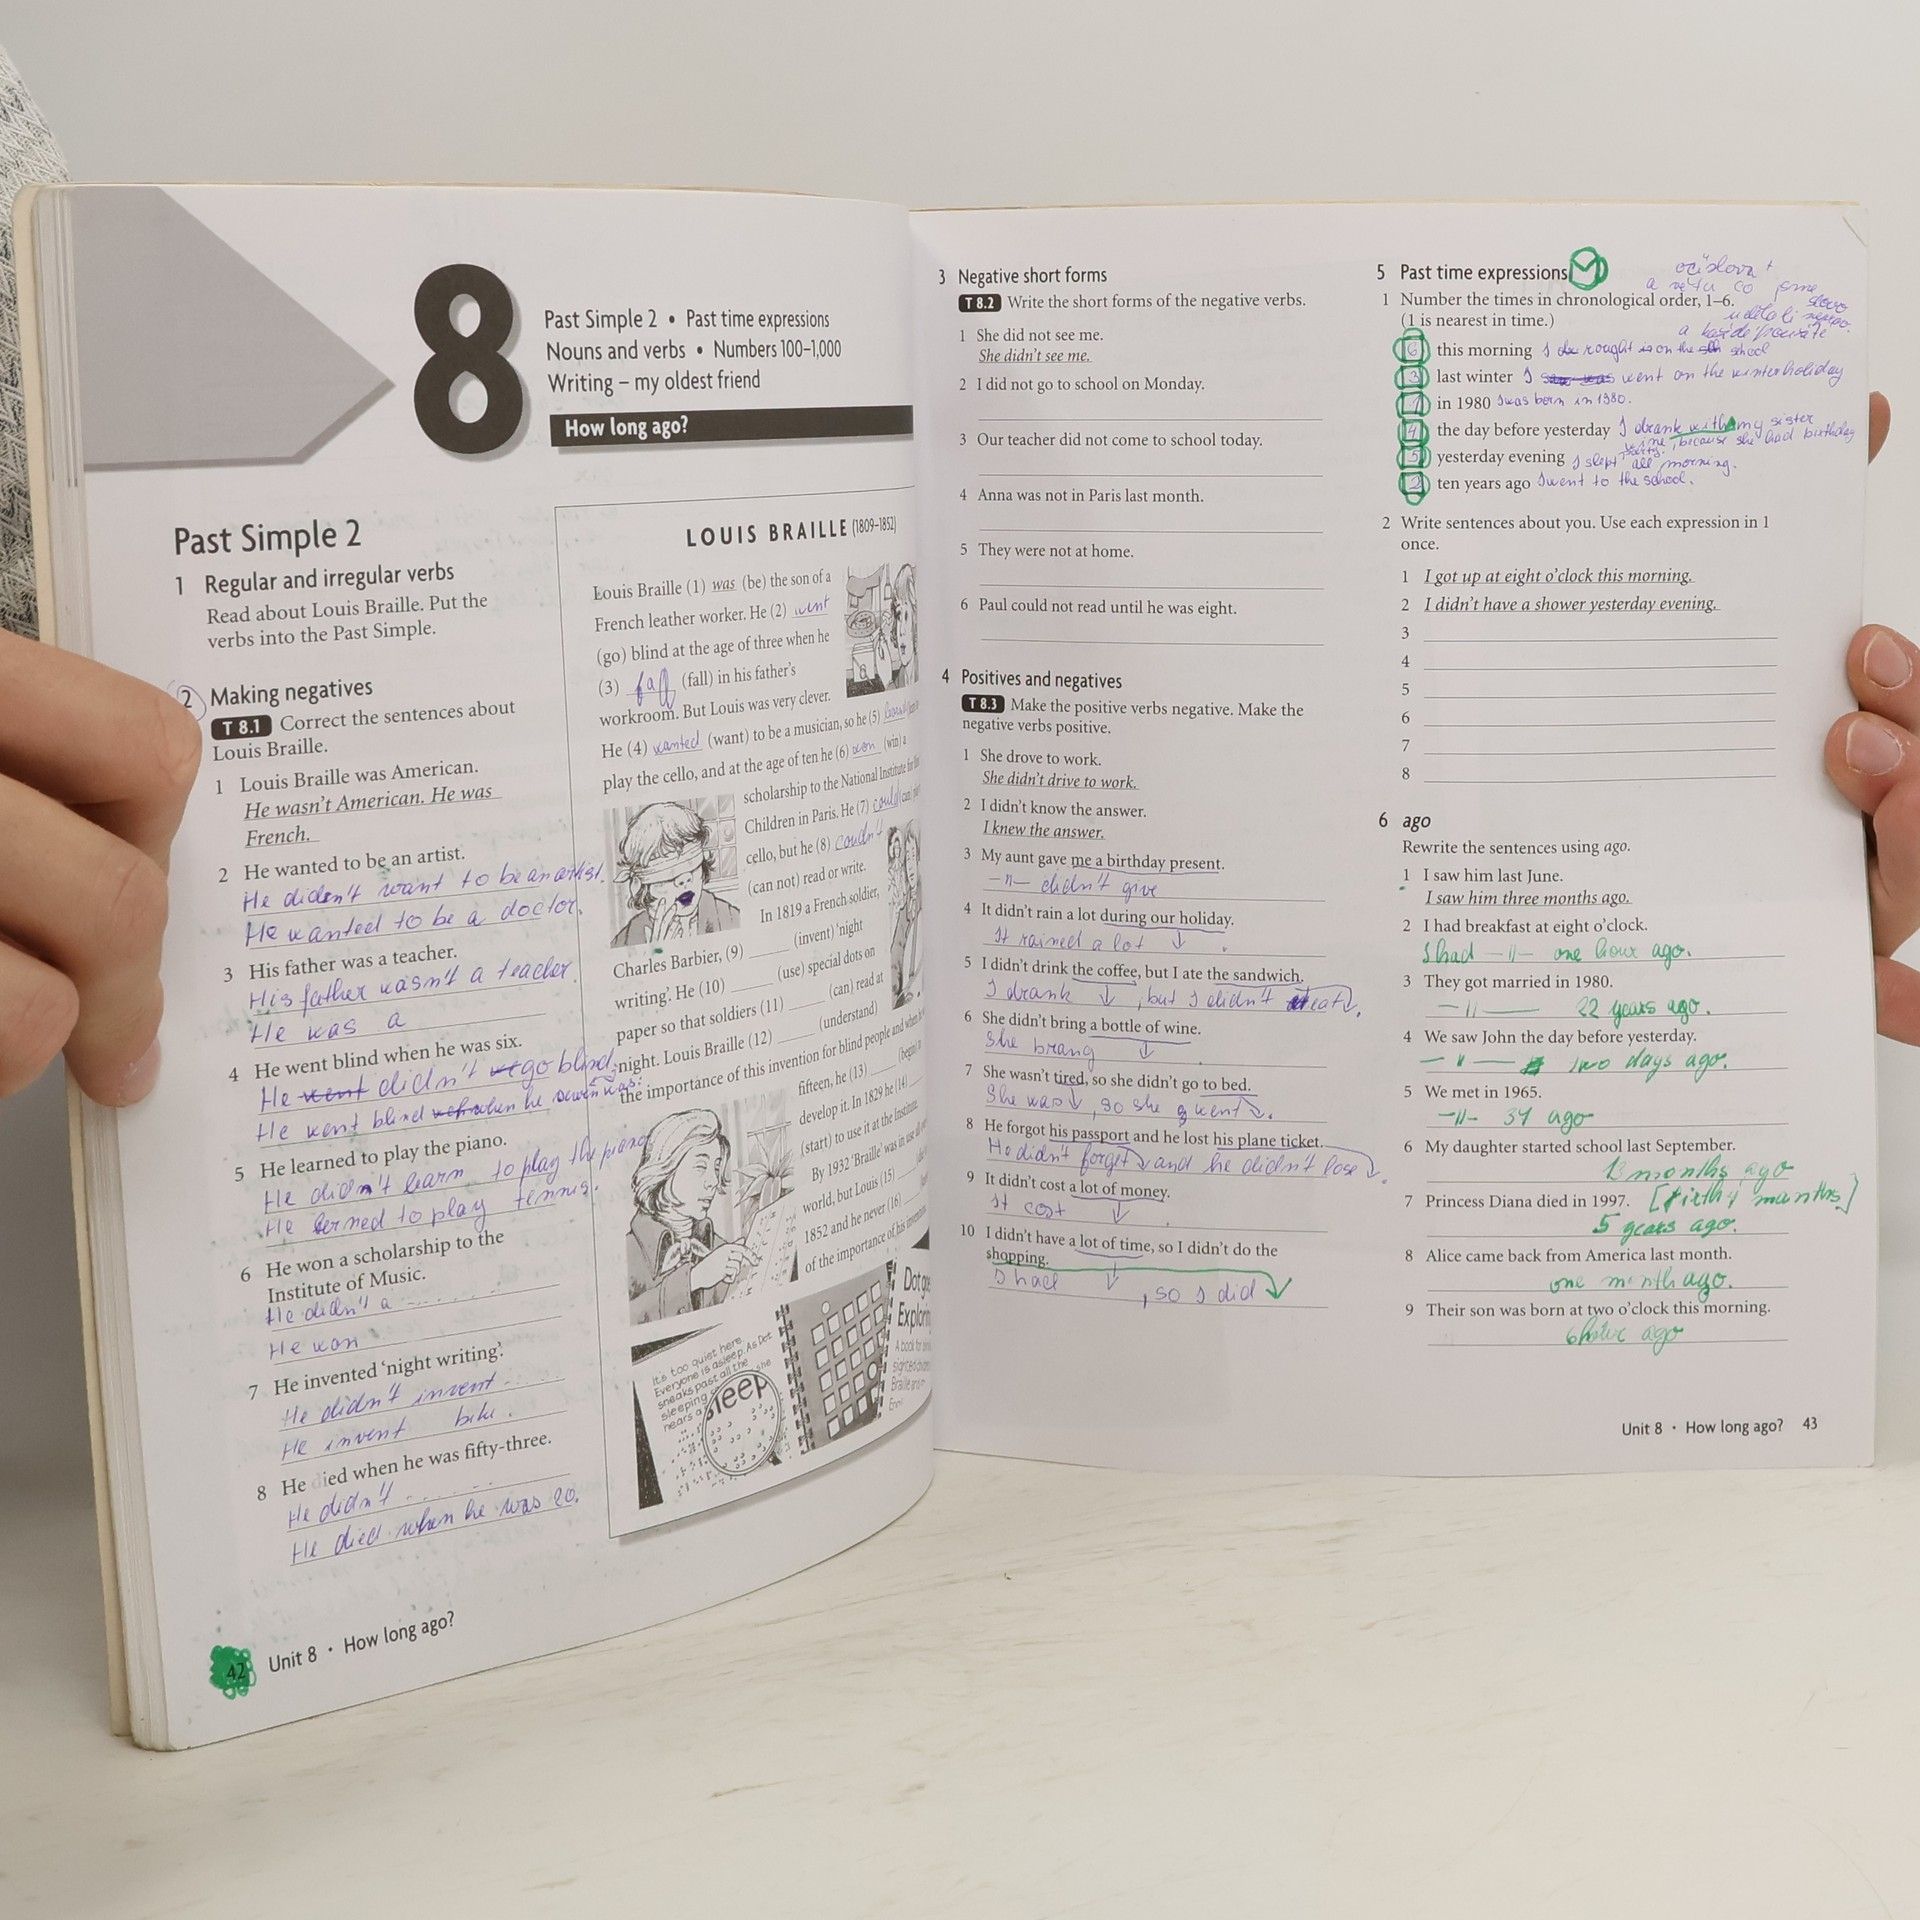 8
Past Simple 2 • Past time expressions
Nouns and verbs • Numbers 100–1,000
Writing – my oldest friend
How long ago?
Past Simple 2
1 Regular and irregular verbs
Read about Louis Braille. Put the
verbs into the Past Simple.
2 Making negatives
T 8.1 Correct the sentences about
Louis Braille.
1 Louis Braille was American.
He wasn't American. He was
French.
2 He wanted to be an artist.
He diden't want to be an artist.
He wanted to be a doctor.
3 His father was a teacher.
His father wasn't a teacher.
He was a
4 He went blind when he was six.
He went didn't go blind.
He went blind when he seven was.
5 He learned to play the piano.
He didn't learn to play the piano
He lerned to play tennis.
6 He won a scholarship to the
Institute of Music.
He didn't a
He won
7 He invented 'night writing'.
He didn't invent
He invent bike.
8 He died when he was fifty-three.
He didn't
He died when he was 20.
42 Unit 8 • How long ago?
LOUIS BRAILLE (1809–1852)
Louis Braille (1) was (be) the son of a
French leather worker. He (2) went
(go) blind at the age of three when he
(3) fall (fall) in his father's
workroom. But Louis was very clever.
He (4) wanted (want) to be a musician, so he (5)
play the cello, and at the age of ten he (6) won (win) a
scholarship to the National Institute for
Children in Paris. He (7) could (can)
cello, but he (8) couldn't
(can not) read or write.
In 1819 a French soldier,
Charles Barbier, (9) ____ (invent) 'night
writing'. He (10) ____ (use) special dots on
paper so that soldiers (11) ____ (can) read at
night. Louis Braille (12) ____ (understand)
the importance of this invention for blind people and when
fifteen, he (13) ____ (begin)
develop it. In 1829 he (14)
(start) to use it at the Institute.
By 1932 'Braille' was in use all
world, but Louis (15)
1852 and he never (16)
of the importance of his
It's too quiet here
Everyone is asleep. As Dot
sneaks past all the
sleeping she
hears a
sleep
Dot
Explor
A book for
sighted
Braille
3 Negative short forms
T 8.2 Write the short forms of the negative verbs.
1 She did not see me.
She didn't see me.
2 I did not go to school on Monday.
3 Our teacher did not come to school today.
4 Anna was not in Paris last month.
5 They were not at home.
6 Paul could not read until he was eight.
4 Positives and negatives
T 8.3 Make the positive verbs negative. Make the
negative verbs positive.
1 She drove to work.
She didn't drive to work.
2 I didn't know the answer.
I knew the answer.
3 My aunt gave me a birthday present.
–"– didn't give
4 It didn't rain a lot during our holiday.
It rained a lot ↓ .
5 I didn't drink the coffee, but I ate the sandwich.
I drank ↓, but I didn't eat ↓.
6 She didn't bring a bottle of wine.
She brang ↓
7 She wasn't tired, so she didn't go to bed.
She was ↓, so she went ↓.
8 He forgot his passport and he lost his plane ticket.
He didn't forget ↓ and he didn't lose ↓.
9 It didn't cost a lot of money.
It cost ↓ .
10 I didn't have a lot of time, so I didn't do the
shopping.
I had ↓, so I did ↓
5 Past time expressions
očíslovat
a větu co jsme
udělali
a každé použite
slovo
1 Number the times in chronological order, 1–6.
(1 is nearest in time.)
6 this morning I rought is on the school
3 last winter I went on the winter holiday
1 in 1980 I was born in 1980.
4 the day before yesterday I drank with my sister
wine, because she had birthday
party.
5 yesterday evening I slept all morning.
2 ten years ago I went to the school.
2 Write sentences about you. Use each expression in 1
once.
1 I got up at eight o'clock this morning.
2 I didn't have a shower yesterday evening.
3
4
5
6
7
8
6 ago
Rewrite the sentences using ago.
1 I saw him last June.
I saw him three months ago.
2 I had breakfast at eight o'clock.
I had –"– one hour ago.
3 They got married in 1980.
–"– 22 years ago.
4 We saw John the day before yesterday.
–"– two days ago.
5 We met in 1965.
–"– 37 ago
6 My daughter started school last September.
13 months ago
7 Princess Diana died in 1997. [months]
5 years ago.
8 Alice came back from America last month.
one month ago.
9 Their son was born at two o'clock this morning.
ago
Unit 8 • How long ago? 43